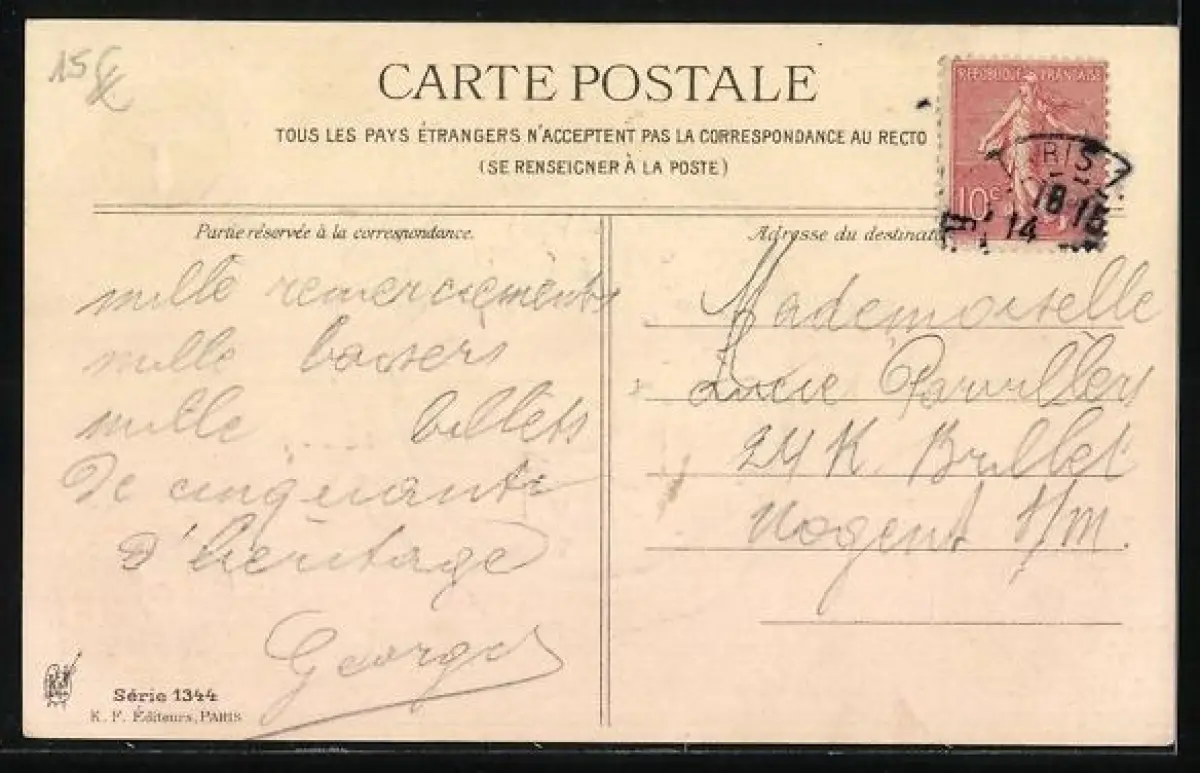 15€
CARTE POSTALE
TOUS LES PAYS ÉTRANGERS N'ACCEPTENT PAS LA CORRESPONDANCE AU RECTO
(SE RENSEIGNER À LA POSTE)
REPUBLIQUE FRANÇAISE
10c
18 15
14
Partie réservée à la correspondance.
mille remerciements
mille baisers
mille ... billets
De cinquante
d'héritage
Georges
Série 1344
K. F. Éditeurs, PARIS
Adresse du destinat
Mademoiselle
Lucie Parvillers
24 R. Brillet
Nogent s/m.